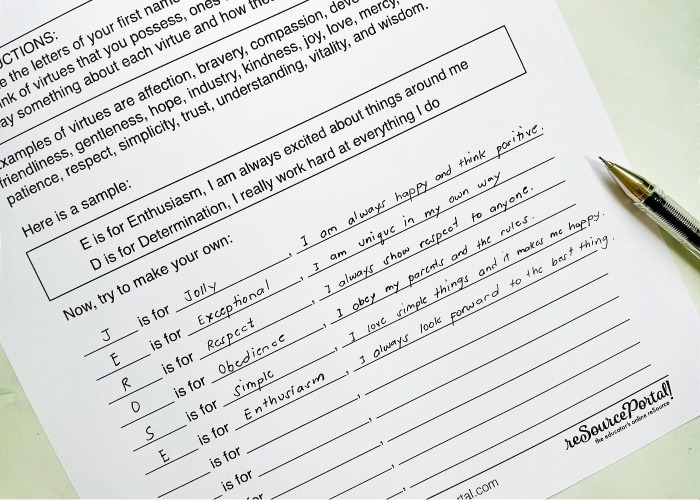 CTIONS:
e the letters of your first name
nk of virtues that you possess, ones
ay something about each virtue and how
xamples of virtues are affection, bravery, compassion,
friendliness, gentleness, hope, industry, kindness, joy, love, mercy,
patience, respect, simplicity, trust, understanding, vitality, and wisdom.
Here is a sample:
E is for Enthusiasm, I am always excited about things around me
D is for Determination, I really work hard at everything I do
Now, try to make your own:
J is for Jolly, I am always happy and think positive.
E is for Exceptional, I am unique in my own way
R is for Respect, I always show respect to anyone.
O is for Obedience, I obey my parents and the rules.
S is for Simple, I love simple things and it makes me happy.
E is for Enthusiasm, I always look forward to the best thing.
is for ,
is for ,
reSourcePortal!
the educator's online reSource
tal.com